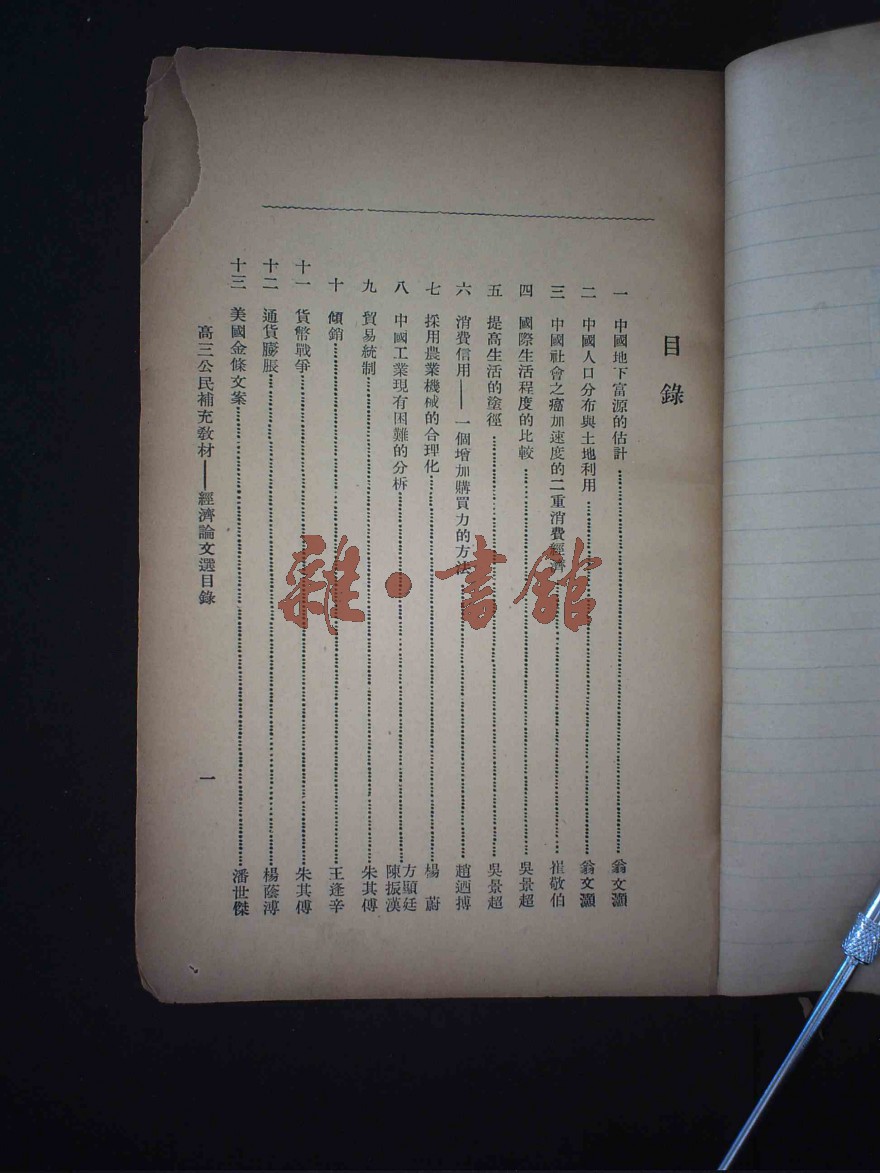 目錄
一 中國地下富源的估計 翁文灝
二 中國人口分布與土地利用 翁文灝
三 中國社會之癌加速度的二重消費經濟 崔敬伯
四 國際生活程度的比較 吳景超
五 提高生活的塗徑 吳景超
六 消費信用——一個增加購買力的方法 趙迺搏
七 採用農業機械的合理化 楊蔚
八 中國工業現有困難的分析 方顯廷 陳振漢
九 貿易統制 朱其傅
十 傾銷 王逢辛
十一 貨幣戰爭 朱其傅
十二 通貨膨脹 楊蔭溥
十三 美國金條文案 潘世傑
高三公民補充敎材——經濟論文選目錄 一
雜·書館